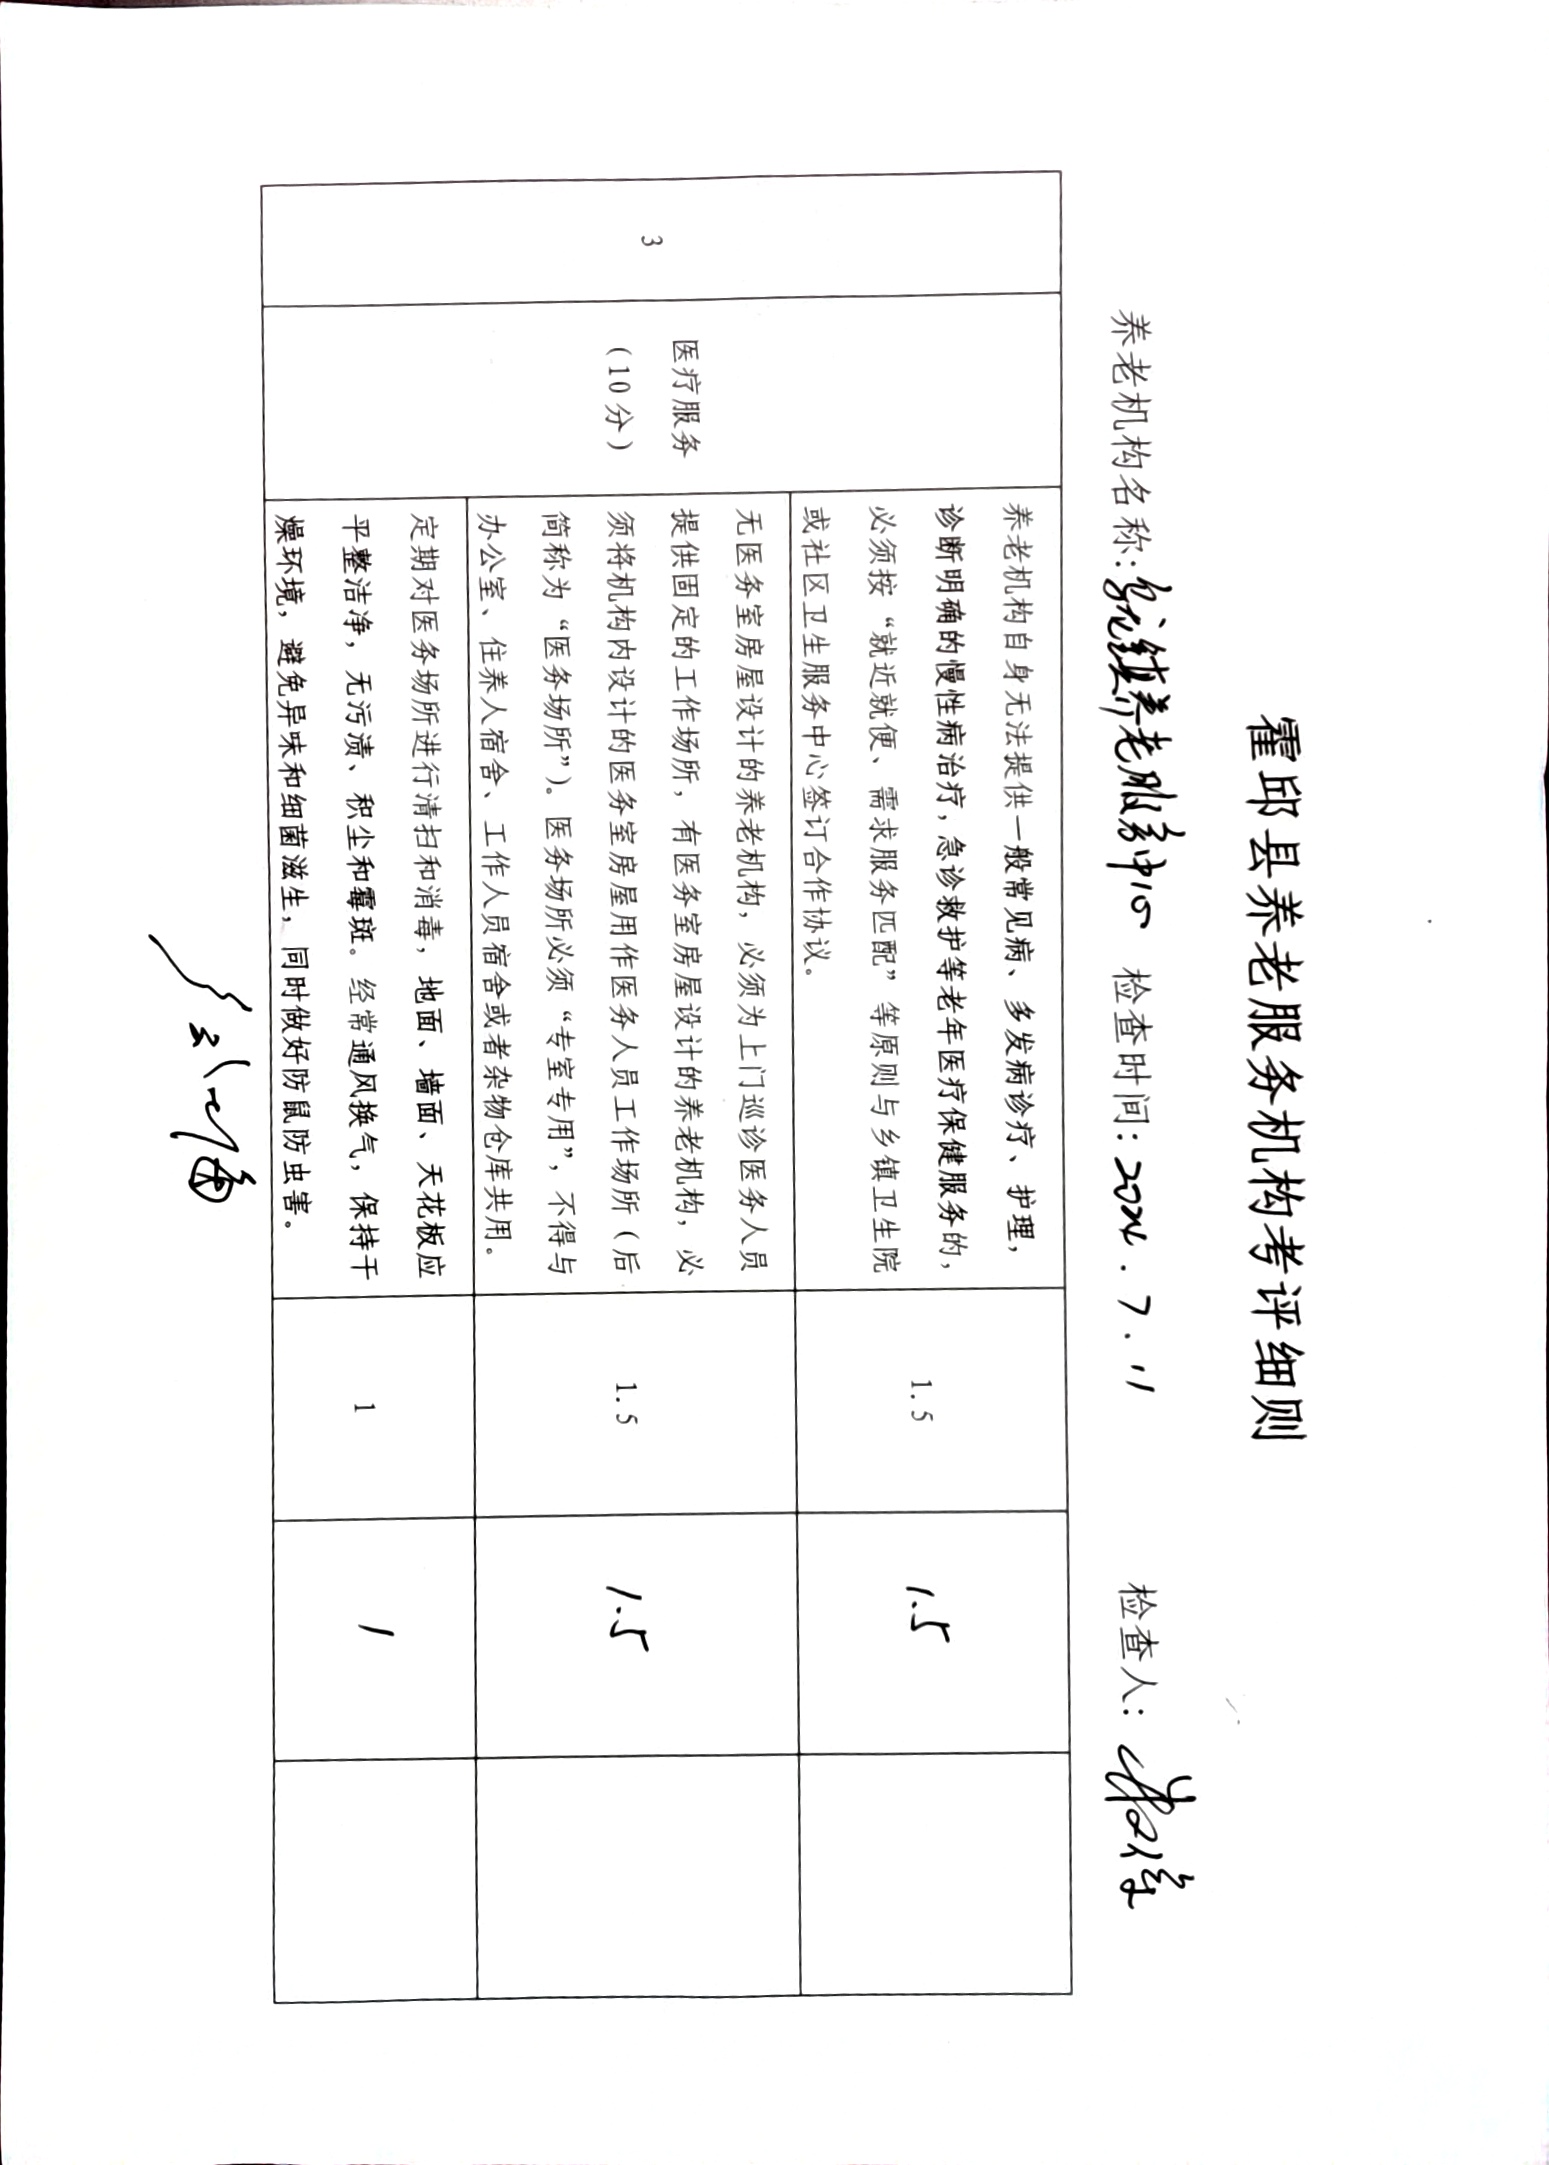 霍邱县养老服务机构考评细则
养老机构名称：镇养老服务中心 检查时间：2024.7.11 检查人：
3
医疗服务
（10分）
养老机构自身无法提供一般常见病、多发病诊疗、护理，
诊断明确的慢性病治疗，急诊救护等老年医疗保健服务的，
必须按“就近就便、需求服务匹配”等原则与乡镇卫生院
或社区卫生服务中心签订合作协议。
1.5
1.5
无医务室房屋设计的养老机构，必须为上门巡诊医务人员
提供固定的工作场所，有医务室房屋设计的养老机构，必
须将机构内设计的医务室房屋用作医务人员工作场所（后
简称为“医务场所”）。医务场所必须“专室专用”，不得与
办公室、住养人宿舍、工作人员宿舍或者杂物仓库共用。
1.5
1.5
定期对医务场所进行清扫和消毒，地面、墙面、天花板应
平整洁净，无污渍、积尘和霉斑。经常通风换气，保持干
燥环境，避免异味和细菌滋生，同时做好防鼠防虫害。
1
1